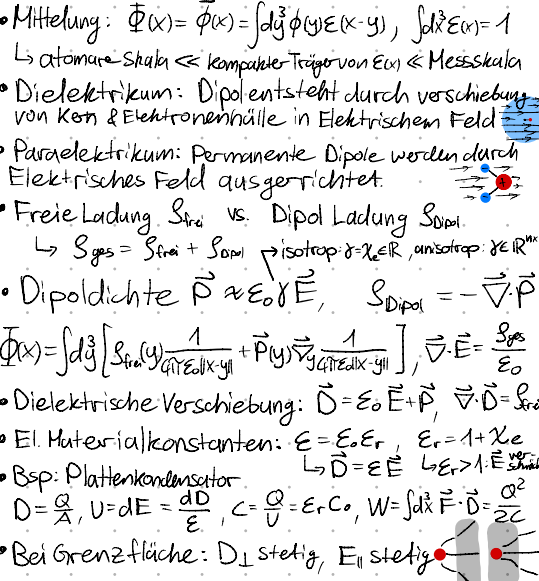 • Mittelung: Φ̄(x) = Φ̄(x) = ∫dy³ ϕ(y)ε(x-y), ∫dx³ε(x) = 1
↳ atomare Skala << kompakter Träger von ε(x) << Messskala
• Dielektrikum: Dipol entsteht durch verschiebung
von Kern & Elektronenhülle in Elektrischem Feld
• Paraelektrikum: Permanente Dipole werden durch
Elektrisches Feld ausgerichtet.
• Freie Ladung ρfrei vs. Dipol Ladung ρDipol
↳ ρges = ρfrei + ρDipol → isotrop: γ=χe∈ℝ, anisotrop: γ∈ℝⁿˣ
• Dipoldichte P⃗ ≈ ε₀γE⃗, ρDipol = -∇⃗·P⃗
Φ̄(x) = ∫dy³ [ρfrei(y) 1/(4πε₀||x-y||) + P⃗(y)∇⃗y 1/(4πε₀||x-y||)], ∇⃗·E⃗ = ρges/ε₀
• Dielektrische Verschiebung: D⃗ = ε₀E⃗ + P⃗, ∇⃗·D⃗ = ρfrei
• El. Materialkonstanten: ε = ε₀εr, εr = 1 + χe
↳ D⃗ = εE⃗ ↳ εr > 1: E⃗
• Bsp: Plattenkondensator
D = Q/A, U = dE = dD/ε, C = Q/U = εrC₀, W = ∫dx³ E⃗·D⃗ = Q²/2C
• Bei Grenzfläche: D⊥ stetig, E∥ stetig